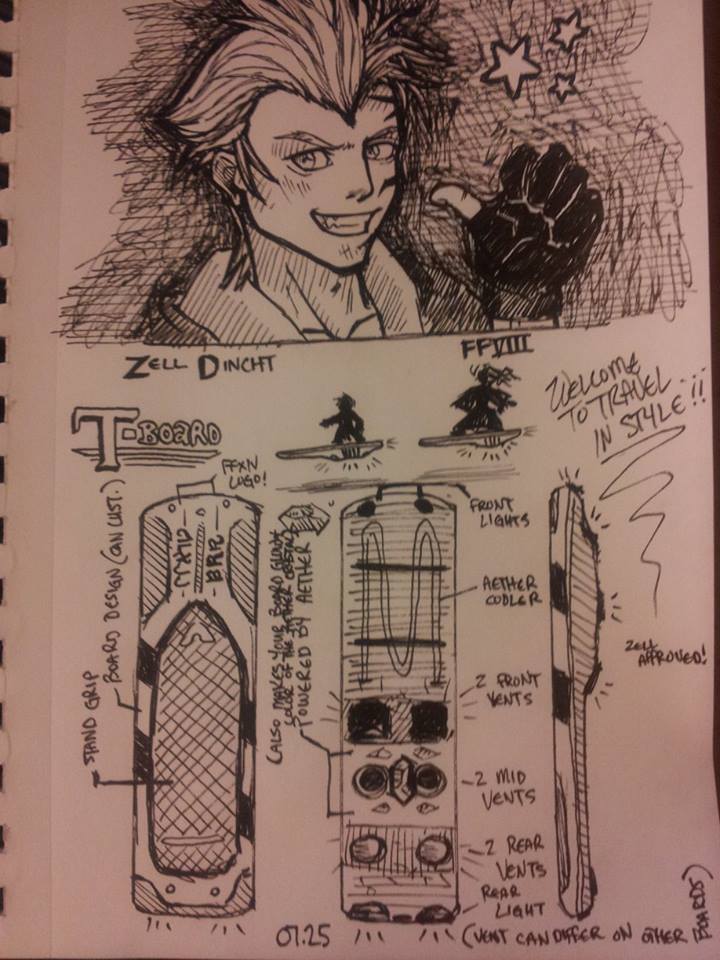 ZELL DINCHT
FFVIII
WELCOME
TO TRAVEL...
IN STYLE!!
T-BOARD
FFXIV
LOGO!
BOARD DESIGN (CAN CUST.)
STAND GRIP
(ALSO MAKES YOUR BOARD GLOW
COLOR OF THE AETHER CRYSTAL)
POWERED BY AETHER
FRONT
LIGHTS
AETHER
COOLER
2 FRONT
VENTS
2 MID
VENTS
2 REAR
VENTS
REAR
LIGHT
ZELL
APPROVED!
07.25
(VENT CAN DIFFER ON OTHER BOARDS)